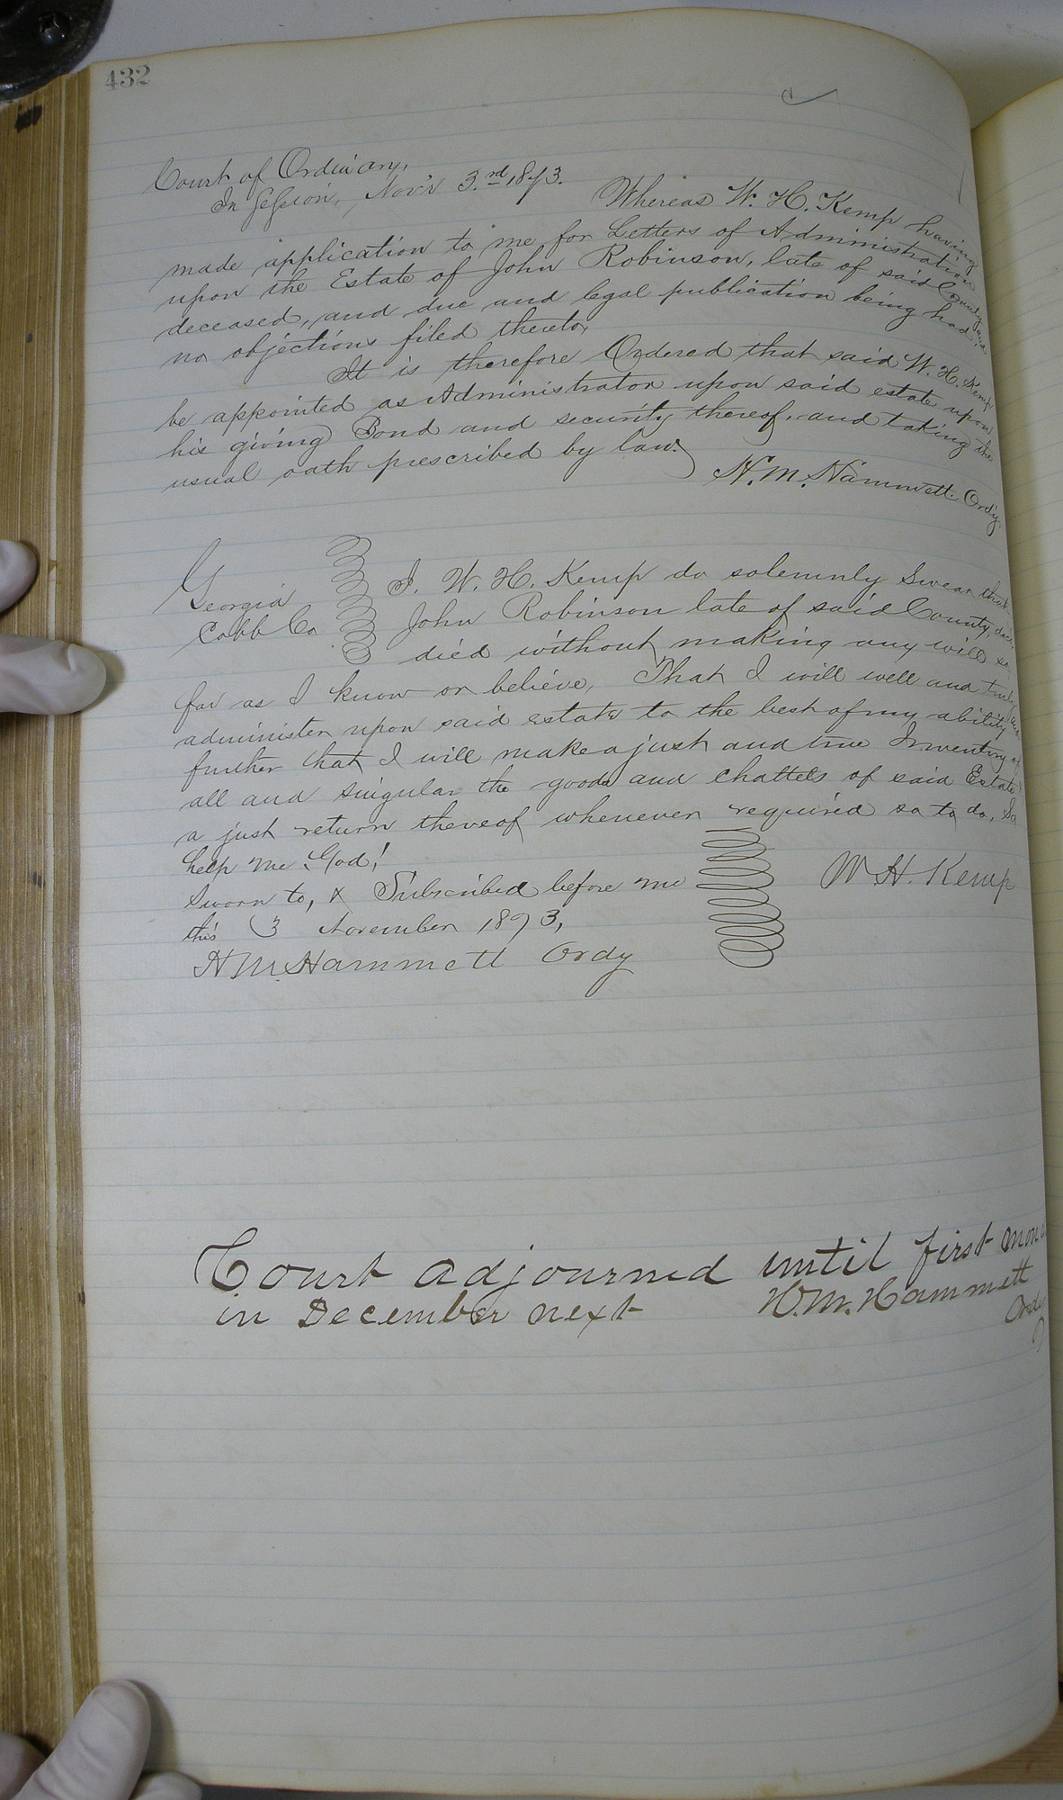 432
Court of Ordinary,
In Session, Nov'r 3.rd 1873.
Whereas W. H. Kemp having
made application to me for Letters of Administration
upon the Estate of John Robinson, late of said County
deceased, and due and legal publication being had
no objections filed thereto,
It is therefore Ordered that said W. H. Kemp
be appointed as Administrator upon said estate upon
his giving Bond and security thereof, and taking the
usual oath prescribed by law.
H. M. Hammett Ordy.
Georgia
Cobb Co
I, W. H. Kemp do solemnly Swear that
John Robinson late of said County, decd.
died without making any will so
far as I know or believe, That I will well and truly
administer upon said estate to the best of my ability,
further that I will make a just and true Inventory of
all and singular the goods and chattels of said Estate
a just return thereof whenever required so to do, So
help me God!
Sworn to, & Subscribed before me
this 3 November 1873,
H. M. Hammett Ordy
W H. Kemp
Court adjourned until first
in December next
H. M. Hammett
Ordy